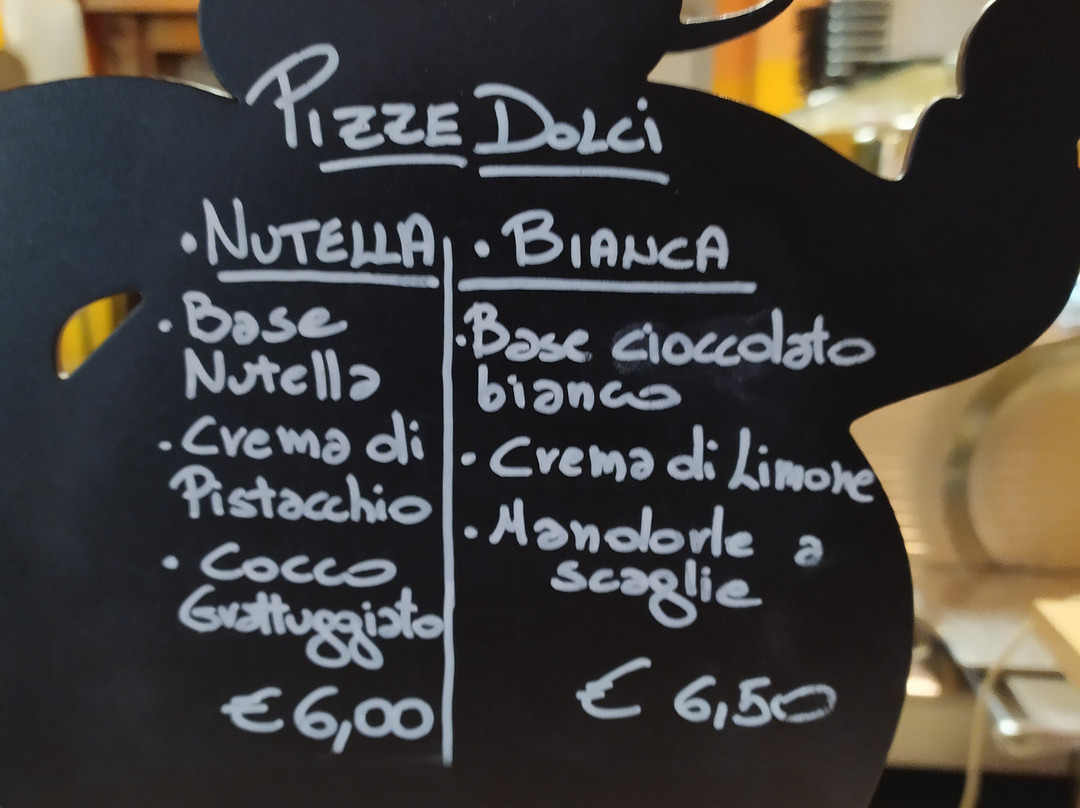 PIZZE DOLCI
• NUTELLA
• Base
Nutella
• Crema di
Pistacchio
• Cocco
Grattuggiato
€ 6,00
• BIANCA
• Base cioccolato
bianco
• Crema di Limone
• Mandorle a
scaglie
€ 6,50